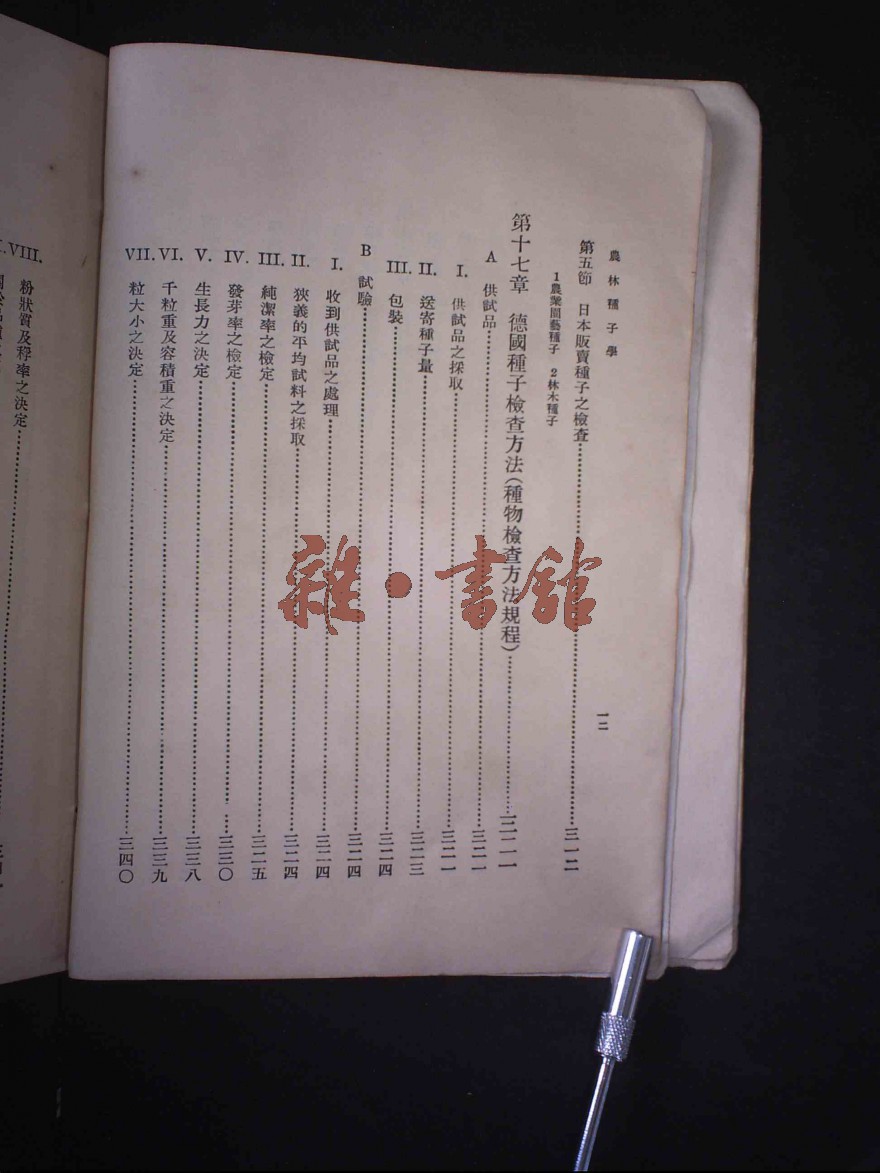 農林種子學
一二
第五節 日本販賣種子之檢查……三一二
1農業園藝種子 2林木種子
第十七章 德國種子檢查方法(種物檢查方法規程)……三二一
A 供試品……三二一
I. 供試品之採取……三二一
II. 送寄種子量……三二三
III. 包裝……三二四
B 試驗……三二四
I. 收到供試品之處理……三二四
II. 狹義的平均試料之採取……三二四
III. 純潔率之檢定……三二五
IV. 發芽率之檢定……三三〇
V. 生長力之決定……三三八
VI. 千粒重及容積重之決定……三三九
VII. 粒大小之決定……三四〇
VIII. 粉狀質及稃率之決定
雜·書館